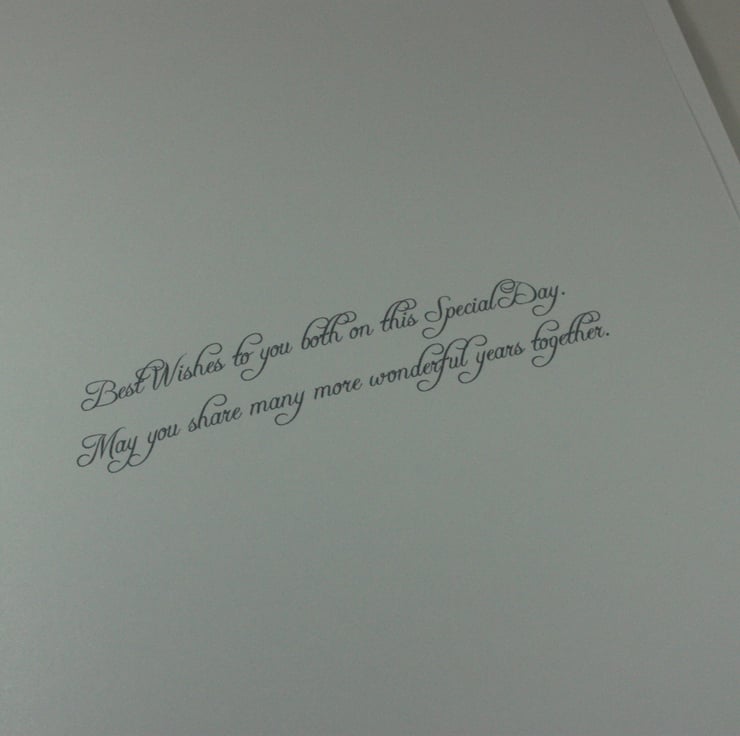 Best Wishes to you both on this Special Day.
May you share many more wonderful years together.